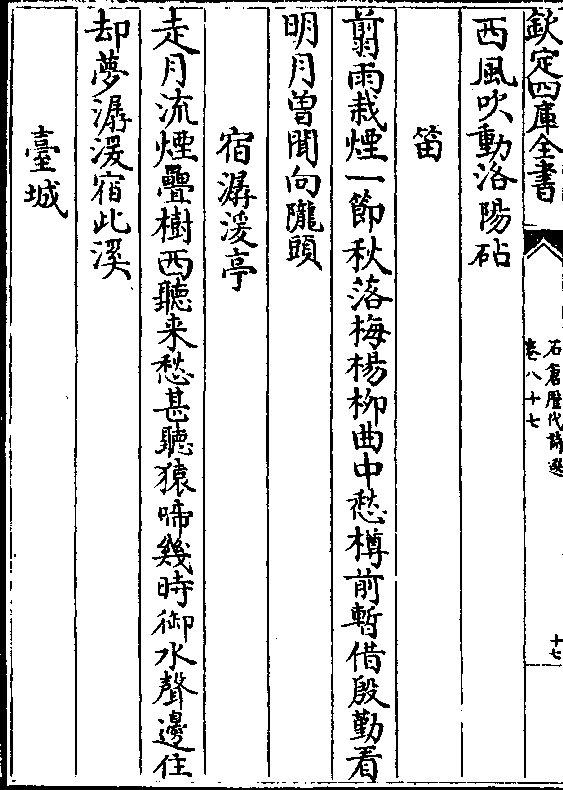 欽定四庫全書
石倉歷代詩選
卷八十七
十七
西風吹動洛陽砧
笛
翦雨栽煙一節秋落梅楊柳曲中愁樽前暫借殷勤看
明月曽聞向隴頭
宿潺湲亭
走月流煙疊樹西聽来愁甚聽猿啼幾時御水聲邊住
却夢潺湲宿此溪
臺城